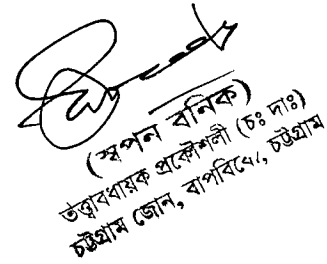 (স্বপন বনিক)
তত্ত্বাবধায়ক প্রকৌশলী (চঃ দাঃ)
চট্টগ্রাম জোন, বাপবিবো, চট্টগ্রাম